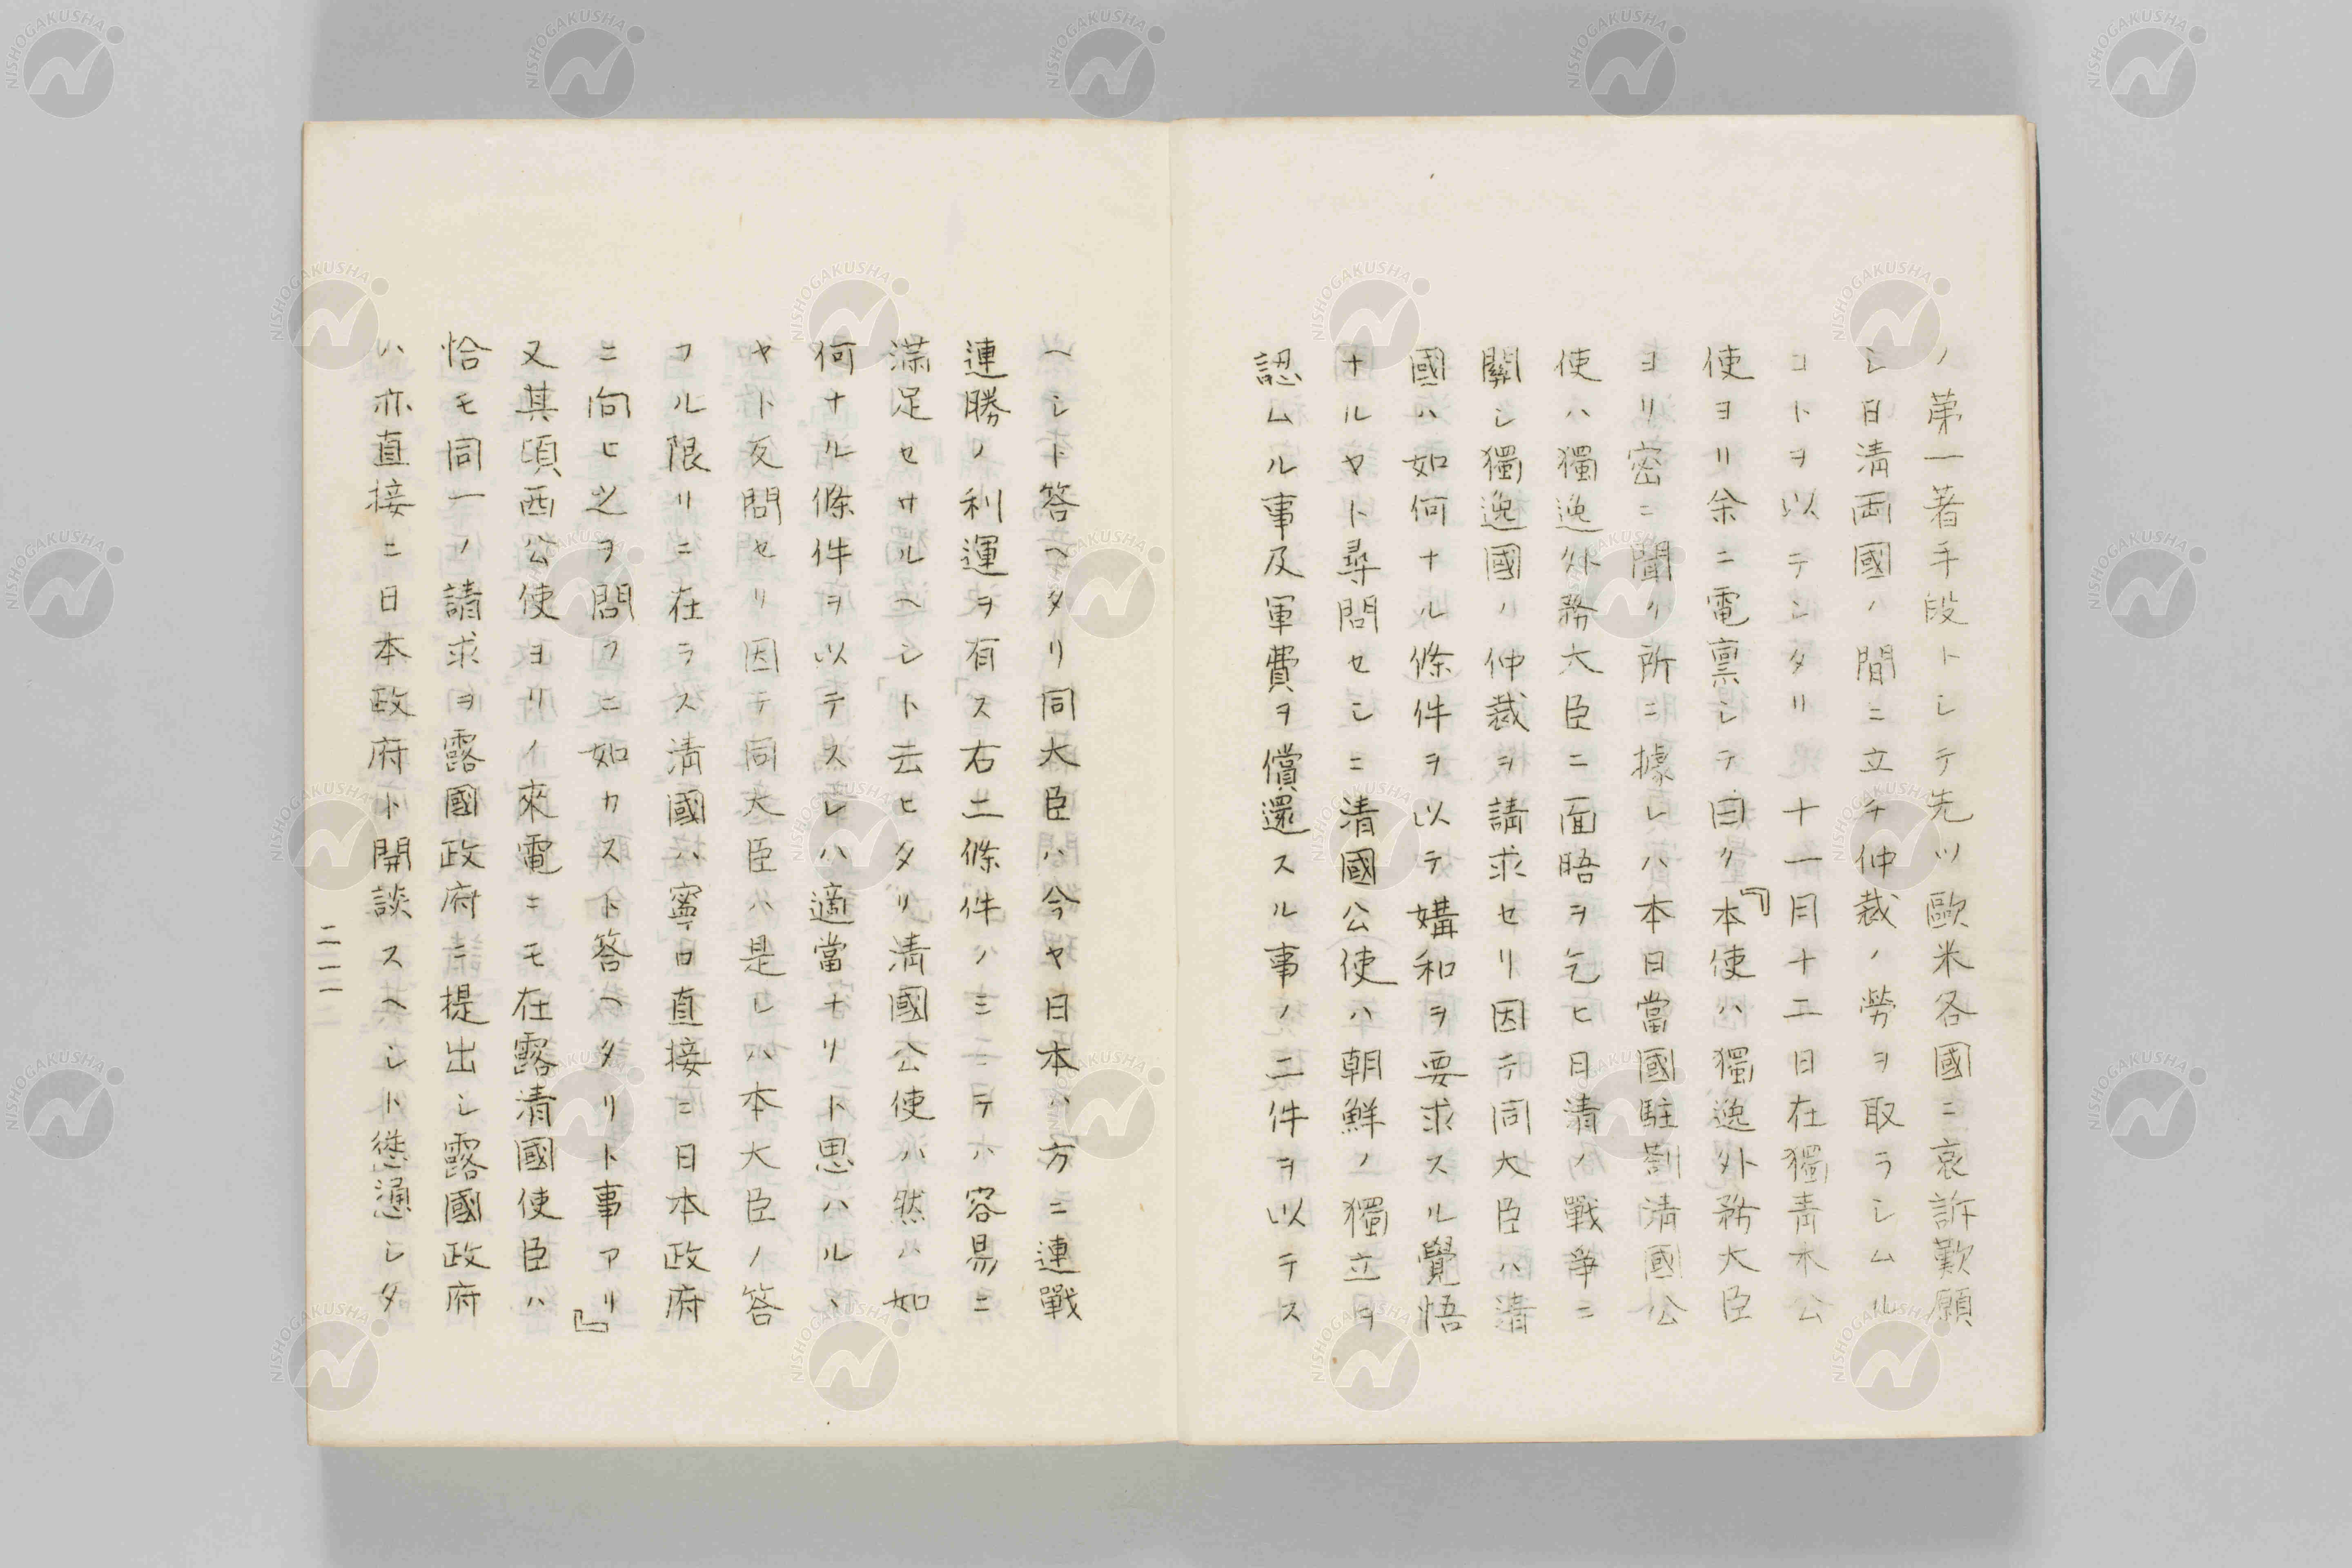 ノ第一著手段トシテ先ツ歐米各國ニ哀訴歎願
シ日清両國ノ間ニ立チ仲裁ノ勞ヲ取ラシムル
コトヲ以テシタリ十一月十二日在獨青木公
使ヨリ余ニ電禀シテ曰ク『本使ハ獨逸外務大臣
ヨリ密ニ聞ク所ニ據レハ本日當國駐劄清國公
使ハ獨逸外務大臣ニ面晤ヲ乞ヒ日清ノ戰爭ニ
關シ獨逸國ノ仲裁ヲ請求セリ因テ同大臣ハ清
國ハ如何ナル條件ヲ以テ媾和ヲ要求スル覺悟
ナルヤト尋問セシニ清國公使ハ朝鮮ノ獨立ヲ
認ムル事及軍費ヲ償還スル事ノ二件ヲ以テス
ヘシト答ヘタリ同大臣ハ今ヤ日本ハ方ニ連戰
連勝ノ利運ヲ有ス右二條件ノミニテハ容易ニ
滿足セサルヘシト去ヒタリ清國公使ハ然ハ如
何ナル條件ヲ以テスレハ適當ナリト思ハルヽ
ヤト反問セリ因テ同大臣ハ是レハ本大臣ノ答
フル限リニ在ラス清國ハ寧ロ直接ニ日本政府
ニ向ヒ之ヲ問フニ如カスト答ヘタリト事アリ』
又其頃西公使ヨリノ來電ニモ在露清國使臣ハ
恰モ同一ノ請求ヲ露國政府ニ提出シ露國政府
ハ亦直接ニ日本政府ト開談スヘシト慫慂シタ
二一二
NISHOGAKUSHA